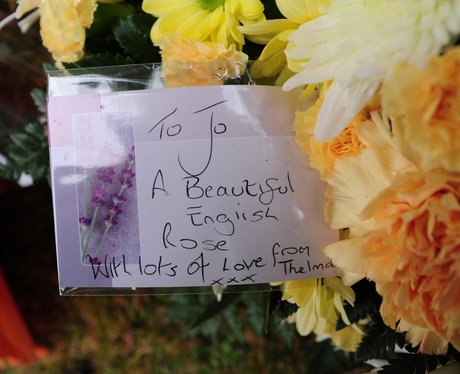 To Jo
A Beautiful
English
Rose
With lots of Love from
Thelma
xxx